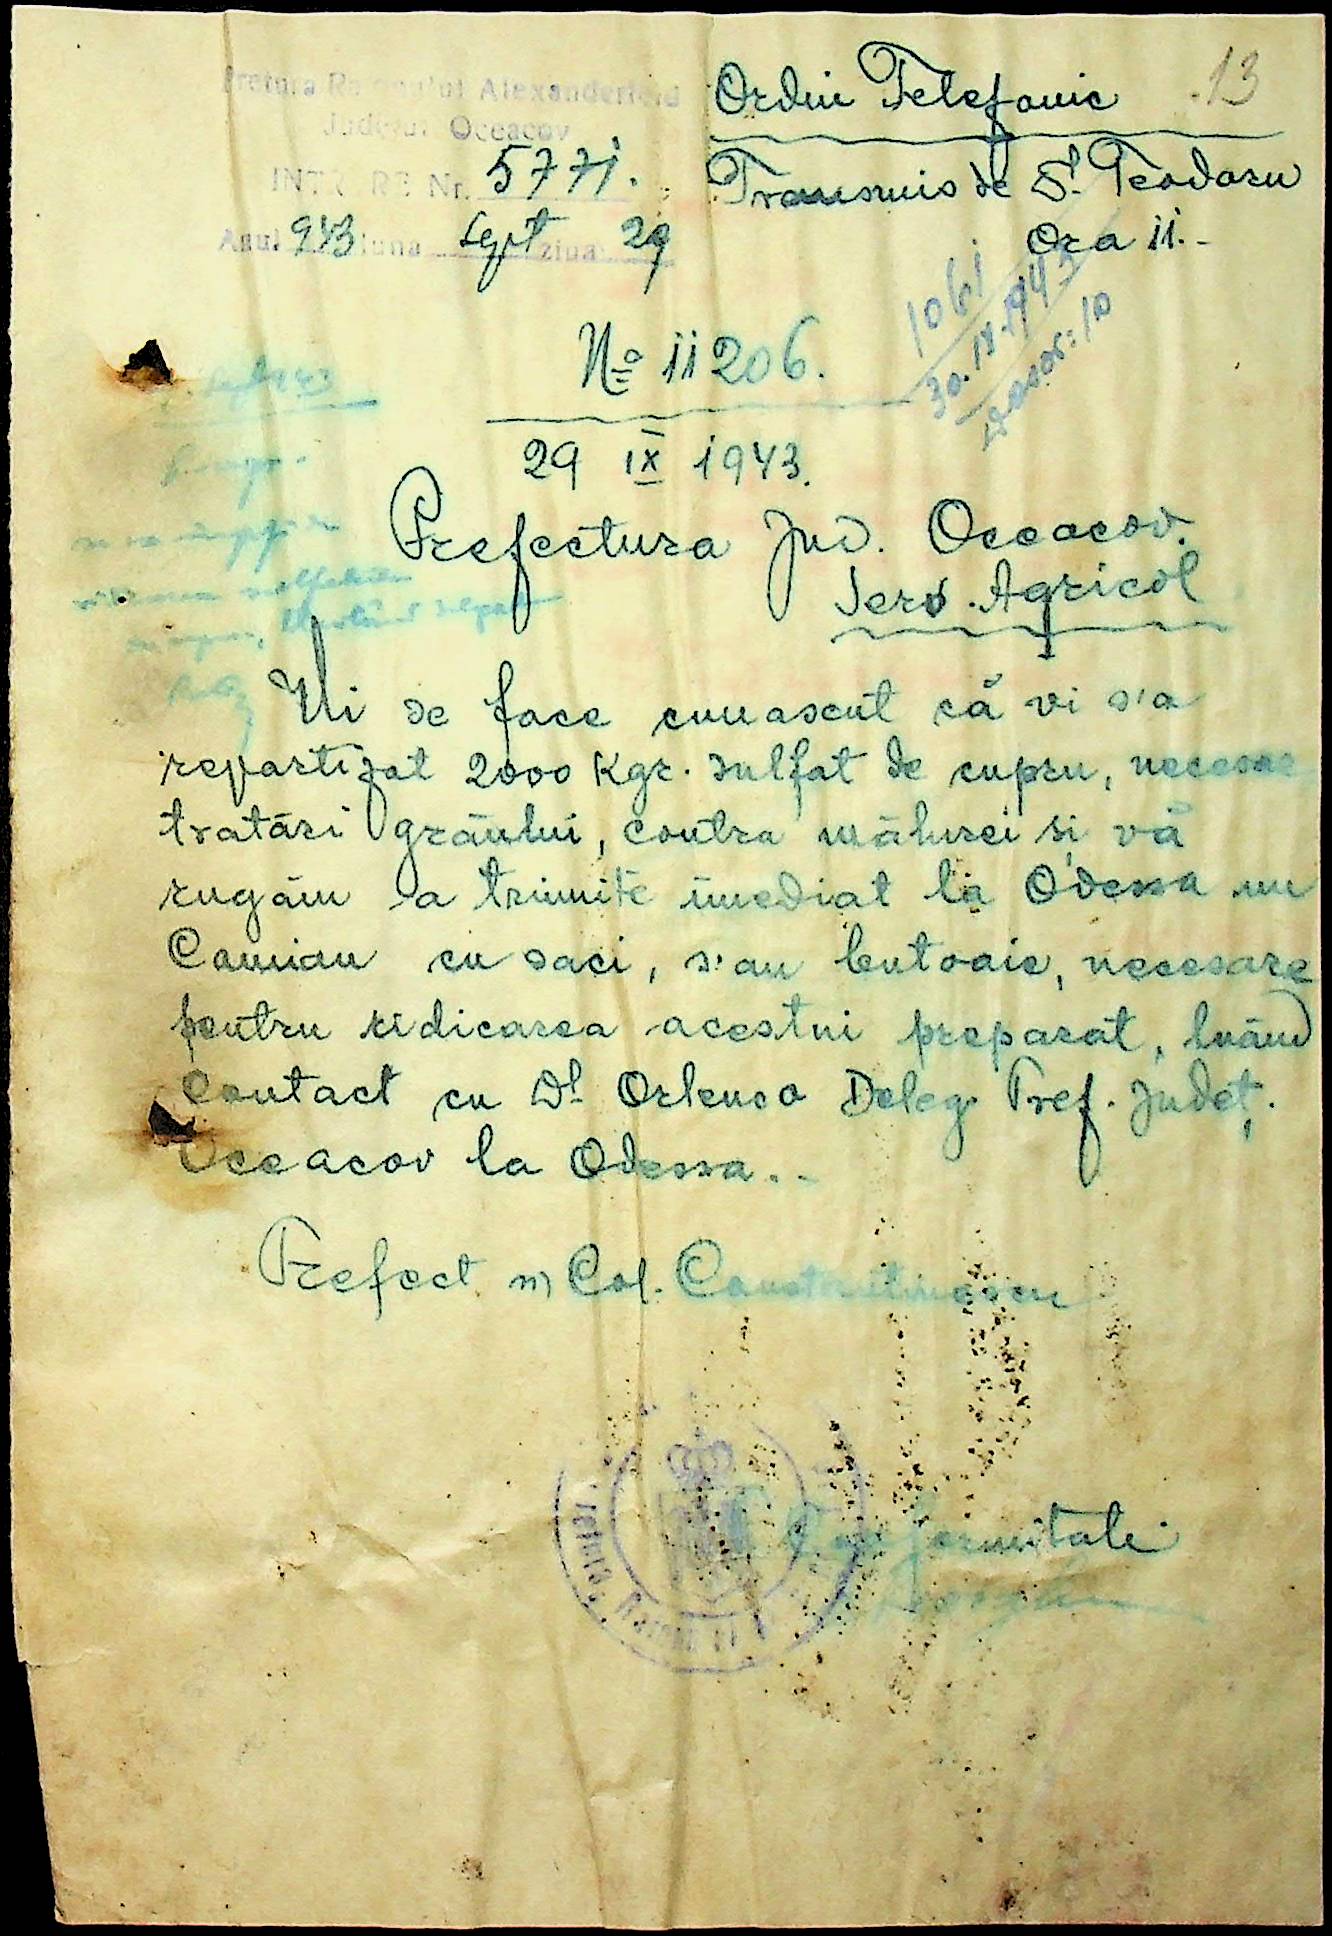 13
Pretura Raionului Alexanderfeld
Județul Oceacov
INTRARE Nr. 5771.
Anul 943 luna Sept ziua 29
Ordin Telefonic
Transmis de Dl. Teodoru
Ora 11.-
1061
30.IX.1943
No 11206.
29 IX 1943.
Prefectura Jud. Oceacov.
Serv. Agricol
Vi se face cunascut că vi s'a
repartizat 2000 Kgr. sulfat de cupru, necesar
tratări grăului, contra mălurei și vă
rugăm a trimite imediat la Odessa un
Camian cu saci, s'au butoaie, necesare
pentru ridicarea acestui preparat, luând
contact cu Dl Orlenco Deleg. Pref. Județ.
Oceacov la Odessa.-
Prefect Col. Constantinescu
Conformitate